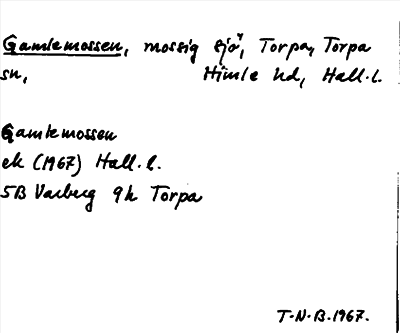 Gamlemossen, mossig sjö, Torpa, Torpa
sn, Himle hd, Hall.l.
Gamlemossen
ek (1967) Hall.l.
5B Varberg 9h Torpa
T.N.B.1967.